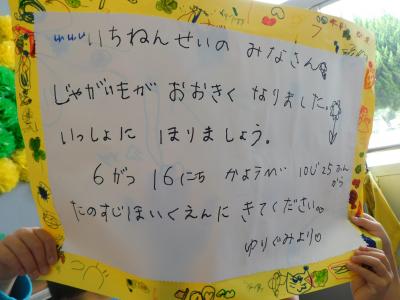 いちねんせいの みなさん
じゃがいもが おおきく なりました。
いっしょに ほりましょう。
6がつ 16にち かようび 10じ25ふん
から
たのすじほいくえんに きてください。
ゆりぐみより♡